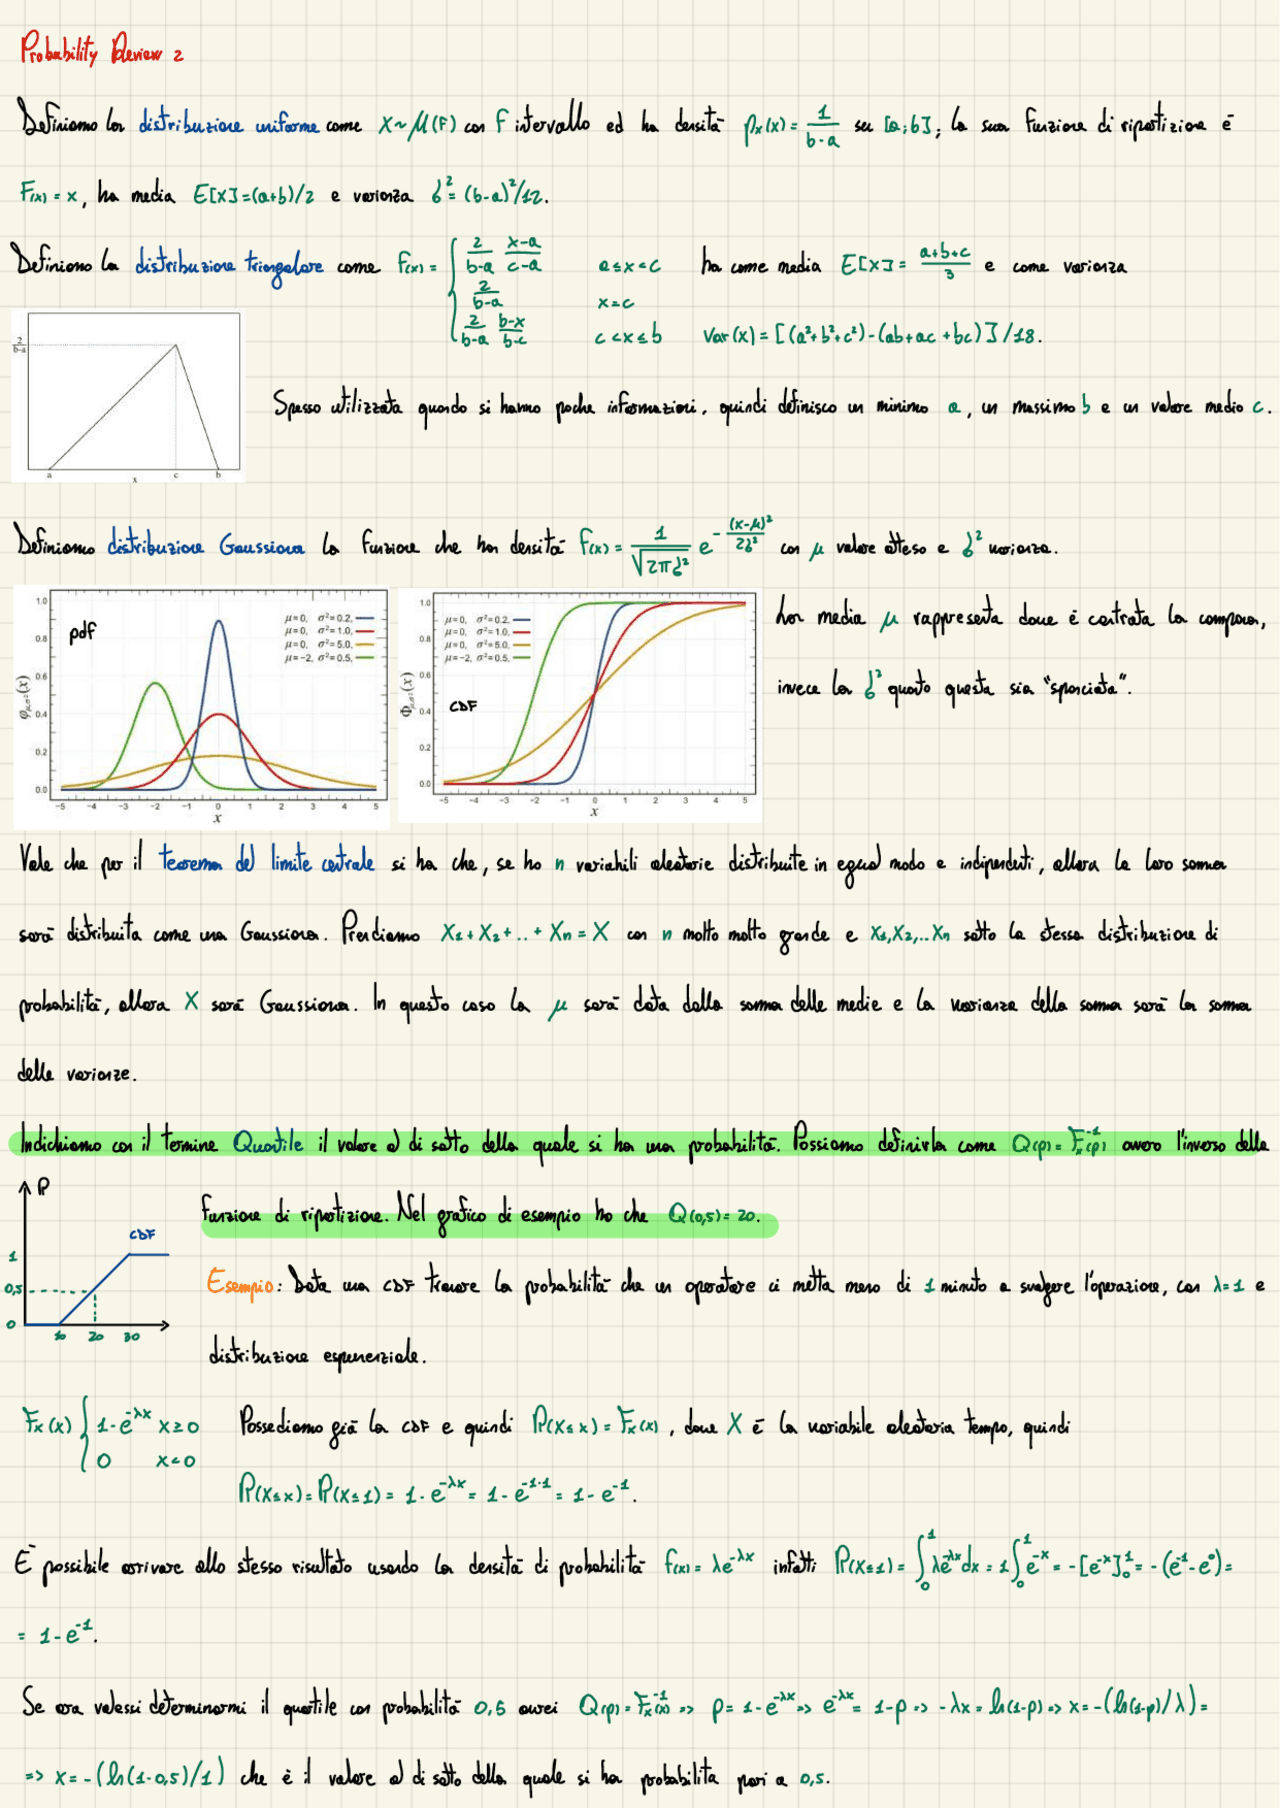 Probability Review 2
Definiamo la distribuzione uniforme come X~U(F) con F intervallo ed ha densità pₓ(x) = 1/(b-a) su [a;b], la sua funzione di ripartizione è
F(x) = x, ha media E[X]=(a+b)/2 e varianza σ² = (b-a)²/12.
Definiamo la distribuzione triangolare come f(x) = { 2/(b-a) (x-a)/(c-a) a≤x<c ha come media E[X] = (a+b+c)/3 e come varianza
2/(b-a) x=c
2/(b-a) (b-x)/(b-c) c<x≤b Var(x) = [(a²+b²+c²)-(ab+ac+bc)]/18.
2/(b-a)
a c b
x
Spesso utilizzata quando si hanno poche informazioni, quindi definisco un minimo a, un massimo b e un valore medio c.
Definiamo distribuzione Gaussiana la funzione che ha densità f(x) = 1/√(2πσ²) e^(-(x-μ)²/2σ²) con μ valore atteso e σ² varianza.
pdf
μ=0, σ²=0.2,
μ=0, σ²=1.0,
μ=0, σ²=5.0,
μ=-2, σ²=0.5,
φμ,σ²(x)
1.0
0.8
0.6
0.4
0.2
0.0
-5 -4 -3 -2 -1 0 1 2 3 4 5
x
CDF
μ=0, σ²=0.2,
μ=0, σ²=1.0,
μ=0, σ²=5.0,
μ=-2, σ²=0.5,
Φμ,σ²(x)
1.0
0.8
0.6
0.4
0.2
0.0
-5 -4 -3 -2 -1 0 1 2 3 4 5
x
La media μ rappresenta dove è centrata la campana,
invece la σ² quanto questa sia "spanciata".
Vale che per il teorema del limite centrale si ha che, se ho n variabili aleatorie distribuite in egual modo e indipendenti, allora la loro somma
sarà distribuita come una Gaussiana. Prendiamo X₁+X₂+..+Xn = X con n molto molto grande e X₁,X₂,..Xn sotto la stessa distribuzione di
probabilità, allora X sarà Gaussiana. In questo caso la μ sarà data dalla somma delle medie e la varianza della somma sarà la somma
delle varianze.
Indichiamo con il termine Quantile il valore al di sotto della quale si ha una probabilità. Possiamo definirla come Q(p) = Fₓ⁻¹(p) ovvero l'inverso della
funzione di ripartizione. Nel grafico di esempio ho che Q(0,5) = 20.
P
CDF
1
0,5
0
10 20 30
Esempio: Data una CDF trovare la probabilità che un operatore ci metta meno di 1 minuto a svolgere l'operazione, con λ=1 e
distribuzione esponenziale.
Fₓ(x) { 1-e^(-λx) x≥0 Possediamo già la CDF e quindi P(X≤x) = Fₓ(x), dove X è la variabile aleatoria tempo, quindi
0 x<0
P(X≤x) = P(X≤1) = 1-e^(-λx) = 1-e^(-1·1) = 1-e⁻¹.
È possibile arrivare allo stesso risultato usando la densità di probabilità f(x) = λe^(-λx) infatti P(X≤1) = ∫₀¹ λe^(-λx) dx = 1∫₀¹ e^(-x) = -[e^(-x)]₀¹ = -(e⁻¹-e⁰) =
= 1-e⁻¹.
Se ora volessi determinarmi il quantile con probabilità 0,5 avrei Q(p) = Fₓ⁻¹(x) => p = 1-e^(-λx) => e^(-λx) = 1-p => -λx = ln(1-p) => x = -(ln(1-p)/λ) =
=> x = -(ln(1-0,5)/1) che è il valore al di sotto della quale si ha probabilita pari a 0,5.